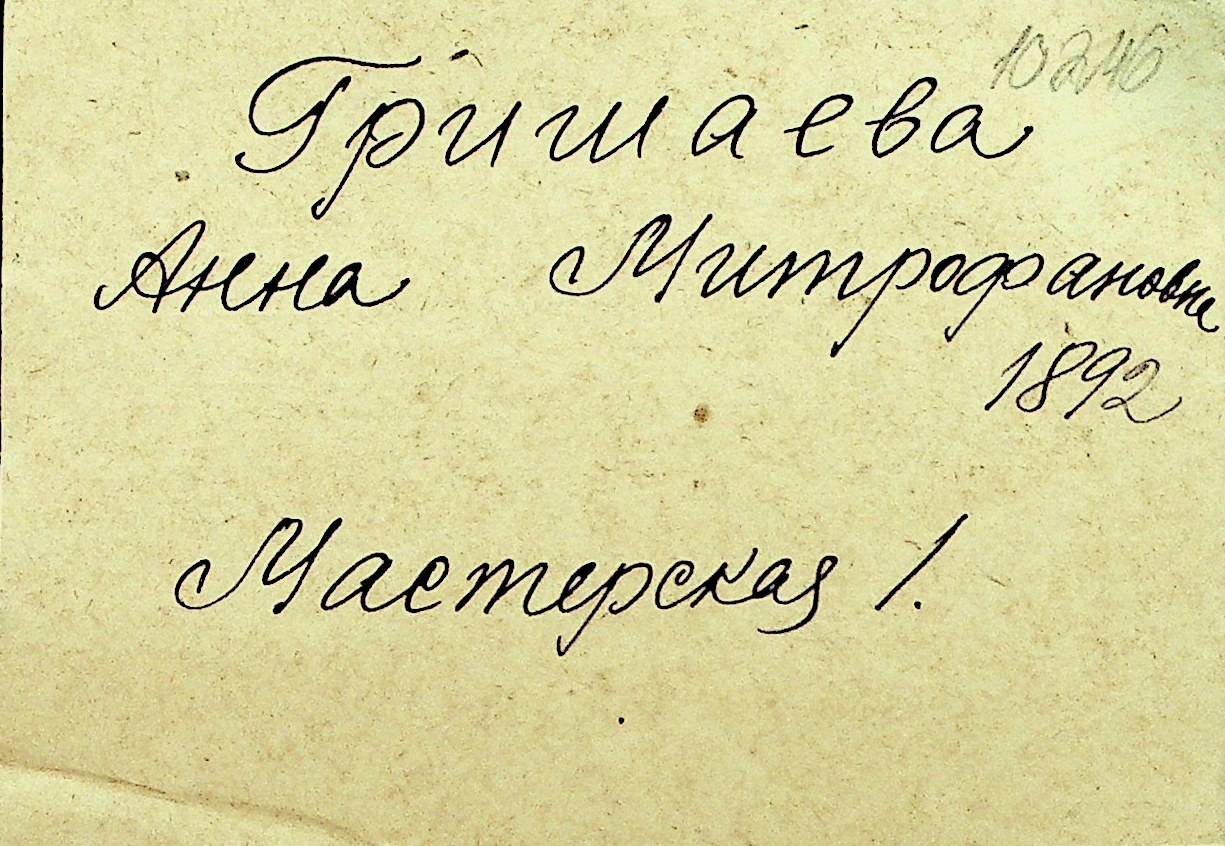 10246
Гришаева
Анна Митрофановна
1892
Мастерская 1.